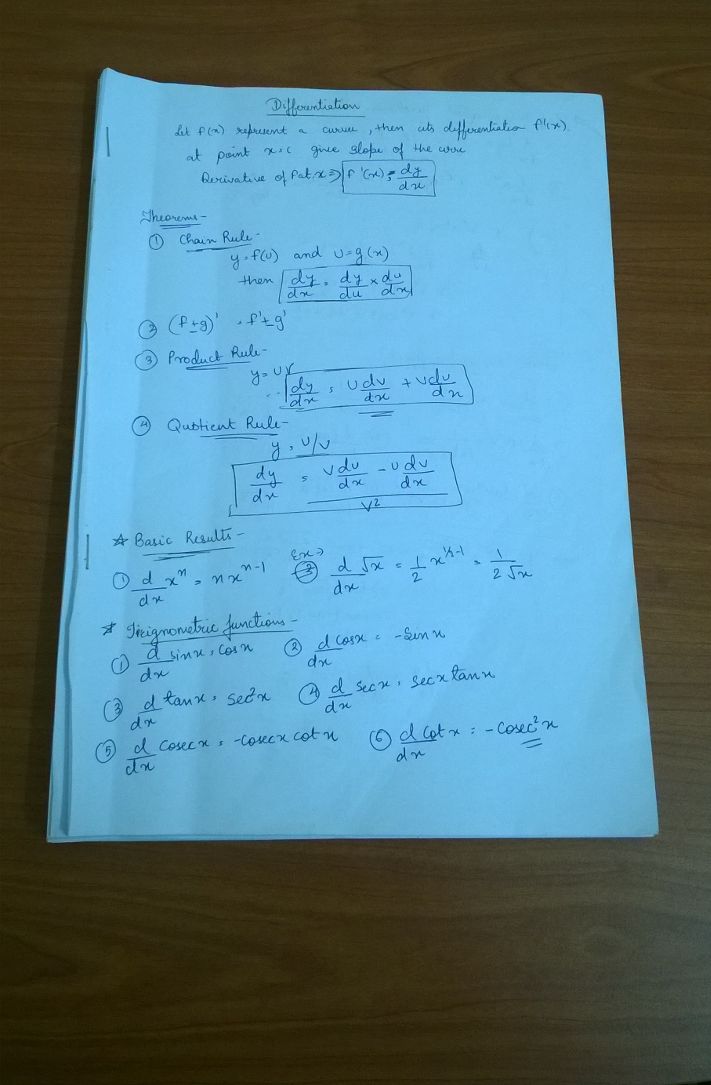 Differentiation
Let f(x) represent a curve, then its differentiation f'(x)
at point x=c give slope of the curve
Derivative of f at x ⇒ f'(x) = dy/dx
Theorems-
① Chain Rule-
y=f(u) and u=g(x)
then dy/dx = dy/du × du/dx
② (f±g)' = f'±g'
③ Product Rule-
y=uv
dy/dx = u dv/dx + v du/dx
④ Quotient Rule-
y = u/v
dy/dx = (v du/dx - u dv/dx)/v²
☆ Basic Results-
① d/dx xⁿ = nxⁿ⁻¹ Ex⇒ d/dx √x = 1/2 x^(1/2-1) = 1/(2√x)
☆ Trignometric functions-
① d/dx sinx = cosx ② d/dx cosx = -sinx
③ d/dx tanx = sec²x ④ d/dx secx = secx tanx
⑤ d/dx cosecx = -cosecx cotx ⑥ d/dx cotx = -cosec²x